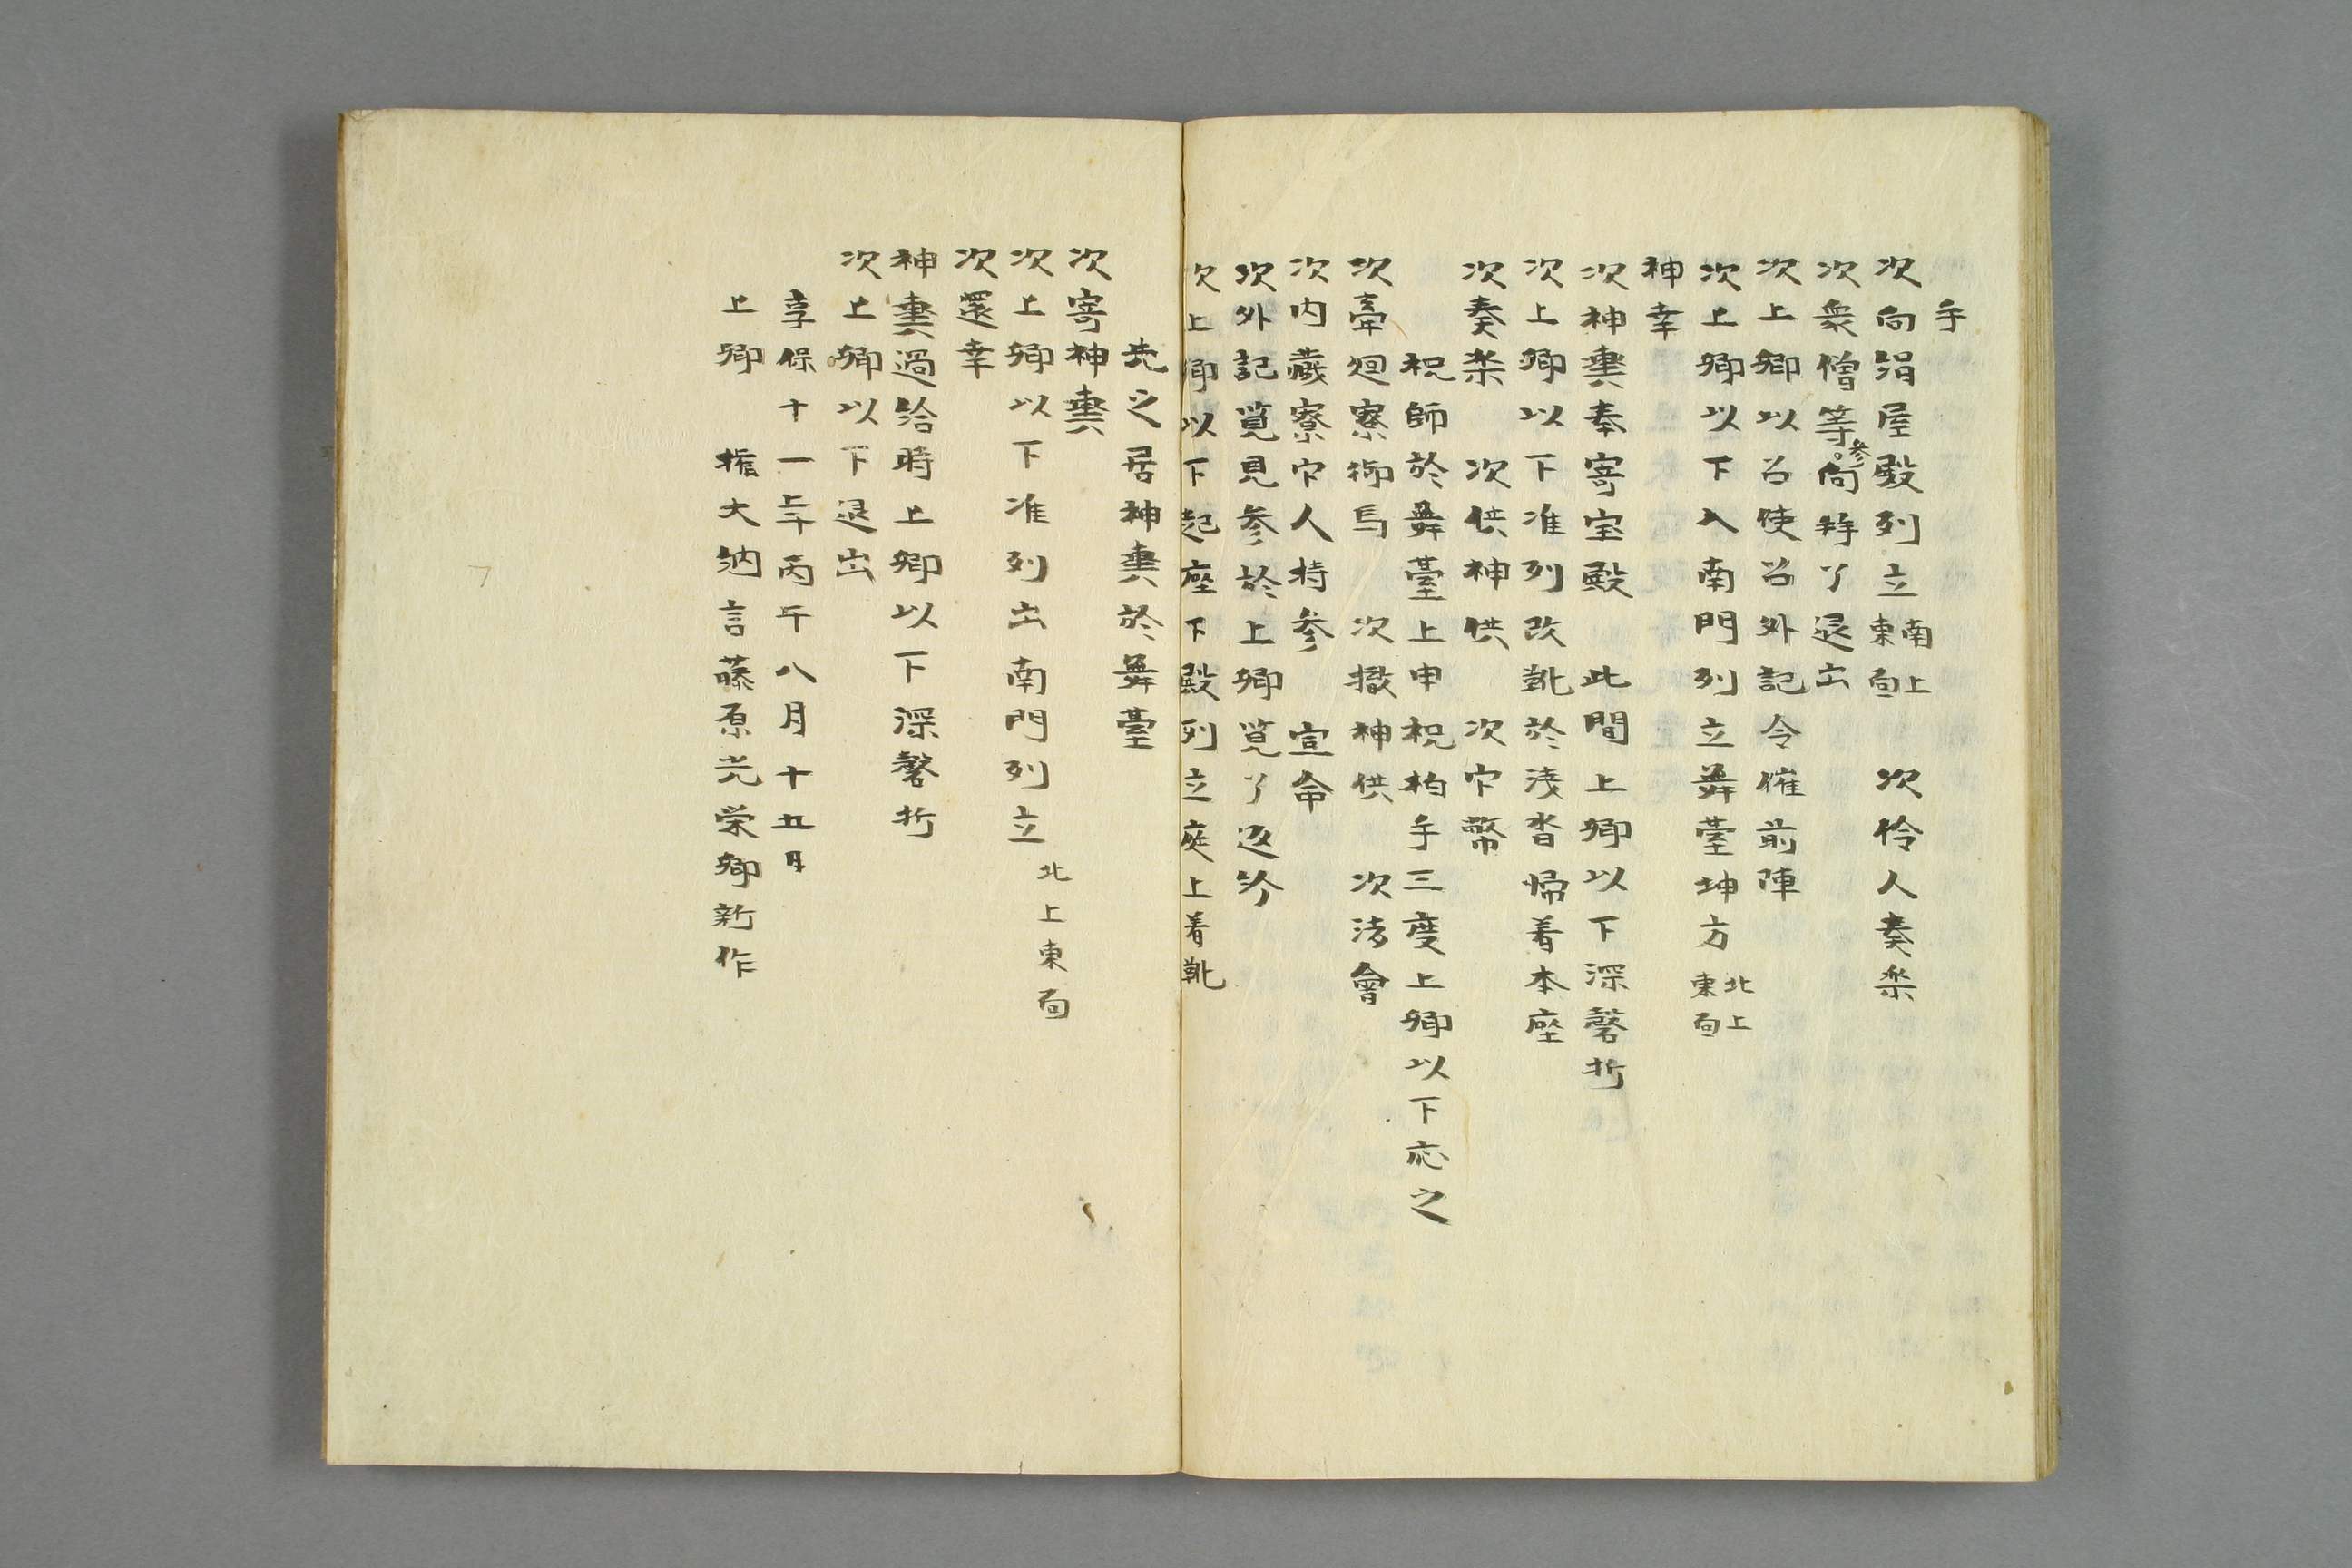 手
次向絹屋殿列立南上東面 次伶人奏楽
次衆僧等参向拝了退出
次上卿以召使召外記令催前陣
次上卿以下入南門列立舞臺坤方北上東面
神幸
次神輿奉寄宝殿 此間上卿以下深磬折
次上卿以下准列改靴於浅沓帰着本座
次奏楽 次供神供 次官幣
祝師於舞臺上申祝柏手三度上卿以下応之
次牽廻寮御馬 次撤神供 次法會
次内蔵寮官人持参 宣命
次外記覧見参於上卿覧了返給
次上卿以下起座下殿列立庭上着靴
先之居神輿於舞臺
次寄神輿
次上卿以下准列出南門列立北上東面
次還幸
神輿過給時上卿以下深磬折
次上卿以下退出
享保十一年丙午八月十五日
上卿 権大納言藤原光栄卿新作